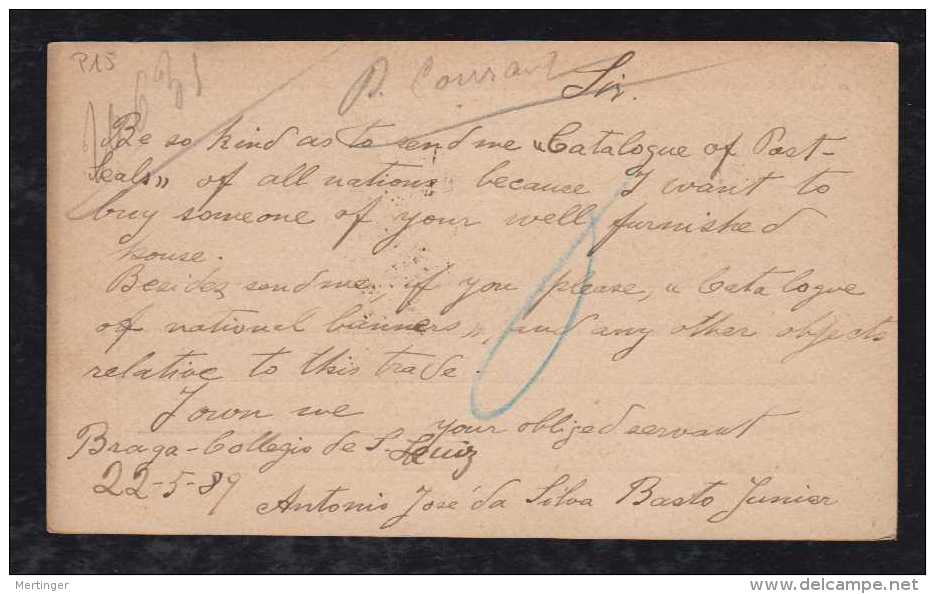 P15
D. Courant
Sir.
Be so kind as to send me "Catalogue of Post-
Seals" of all nations because I want to
buy someone of your well furnished
house.
Besides send me, if you please, "Catalogue
of national banners", and any other objects
relative to this trade.
I own me
your obliged servant
Braga - Collegio de S. Luiz
22-5-89
Antonio José da Silva Basto Junior
Mertinger
delcampe.net